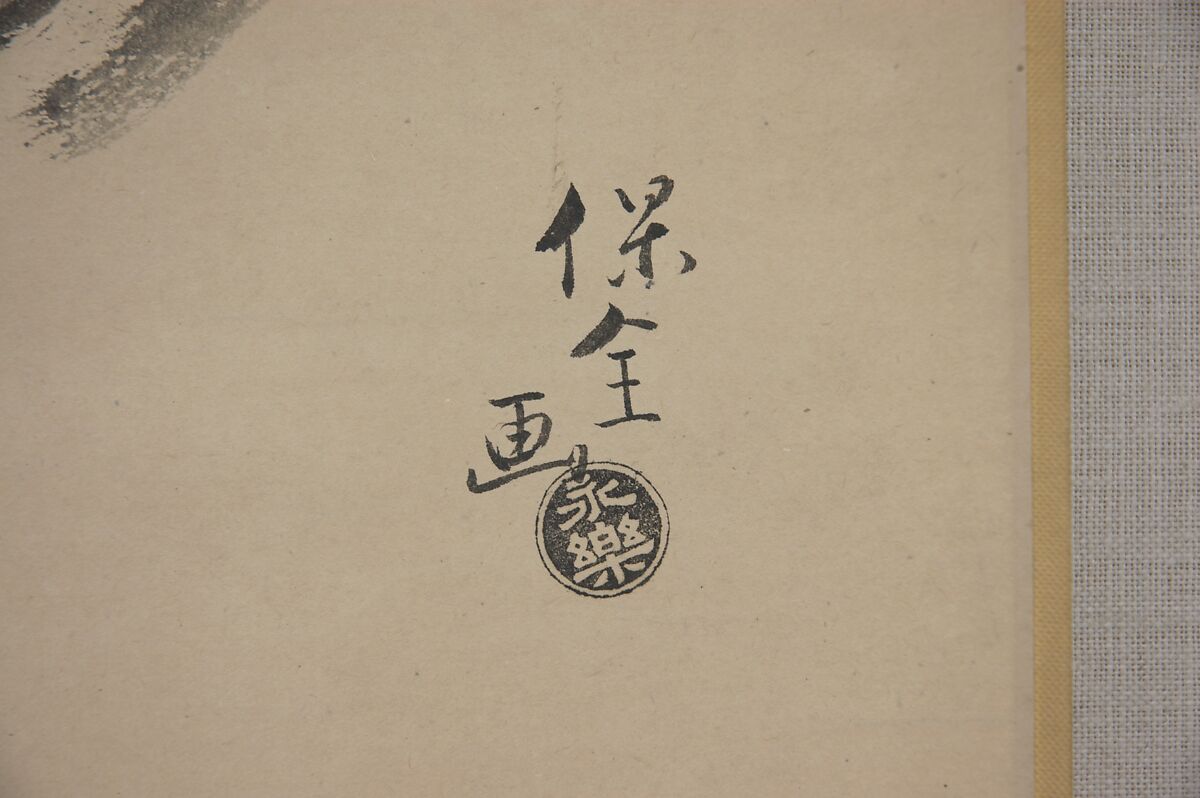 保全
画
永樂